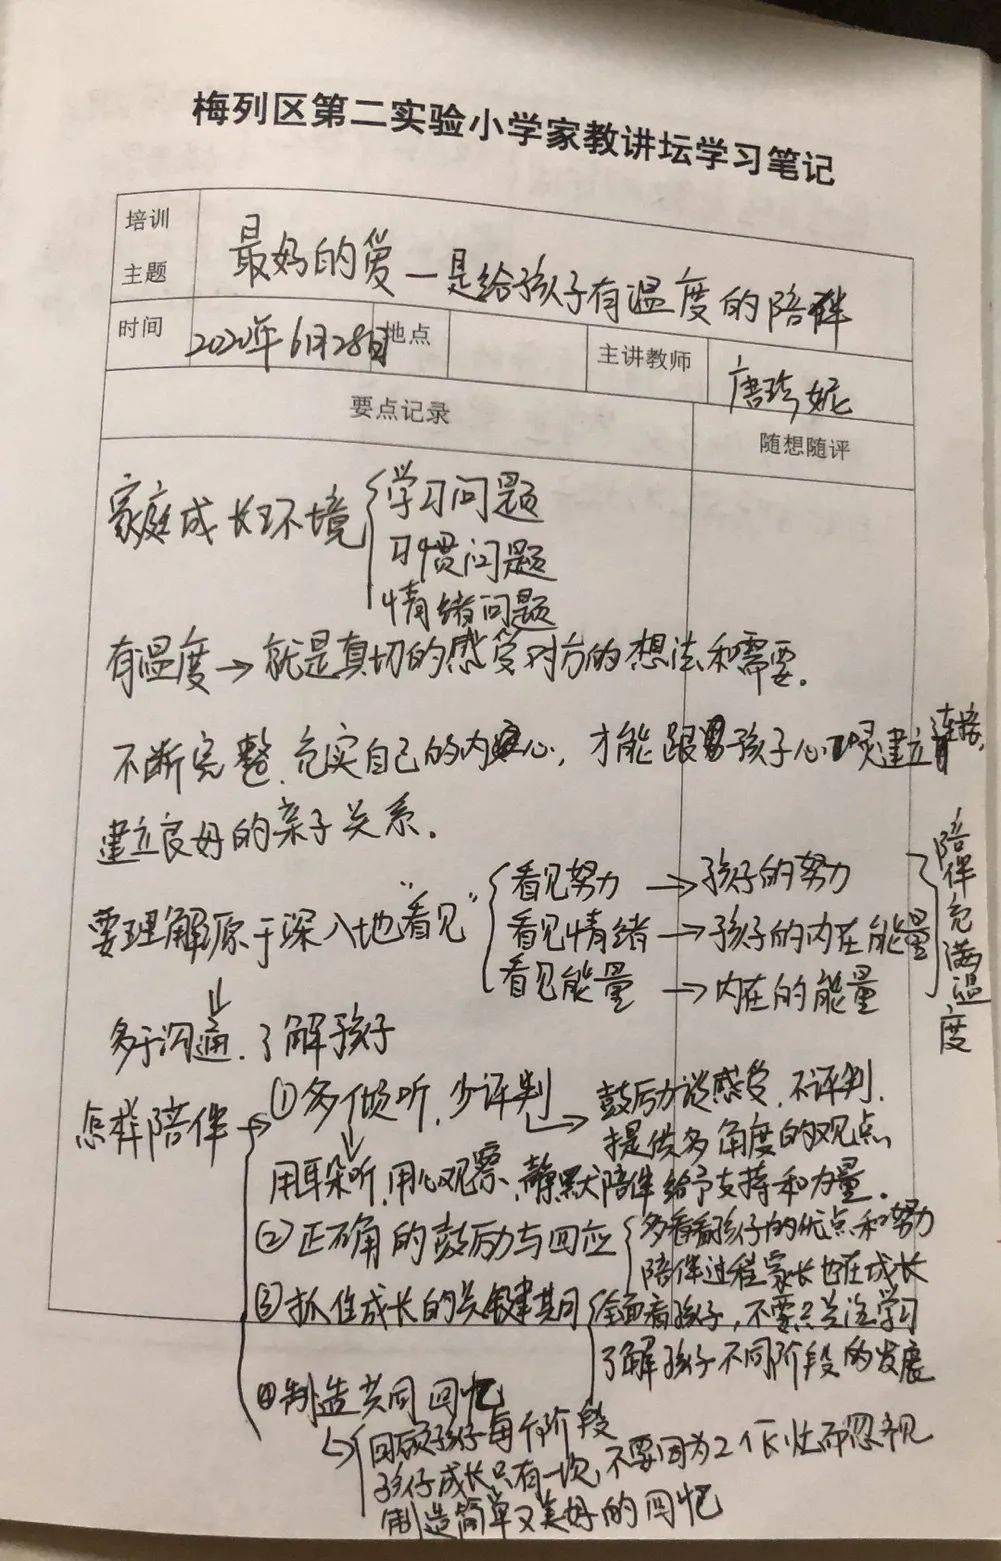 梅列区第二实验小学家教讲坛学习笔记
培训主题 最好的爱一是给孩子有温度的陪伴
时间 2020年6月28日 地点 主讲教师 唐珍妮
要点记录 随想随评
家庭成长环境 学习问题
习惯问题
情绪问题
有温度→就是真切的感受对方的想法和需要。
不断完整、充实自己的内心，才能跟孩子心灵建立连接，
建立良好的亲子关系。
要理解原于深入地"看见" 看见努力→孩子的努力
看见情绪→孩子的内在能量
看见能量→内在的能量
陪伴充满温度
多于沟通、了解孩子
怎样陪伴→①多倾听，少评判→鼓励谈感受、不评判、
提供多角度的观点、
用耳朵听，用心观察、静默陪伴给予支持和力量。
②正确的鼓励与回应 多看看孩子的优点和努力
陪伴过程家长也在成长
③抓住成长的关键 全面看孩子，不要只关注学习
了解孩子不同阶段的发展
④制造共同回忆
回顾孩子每个阶段
孩子成长只有一次，不要因为2个 而忽视
制造简单又美好的回忆